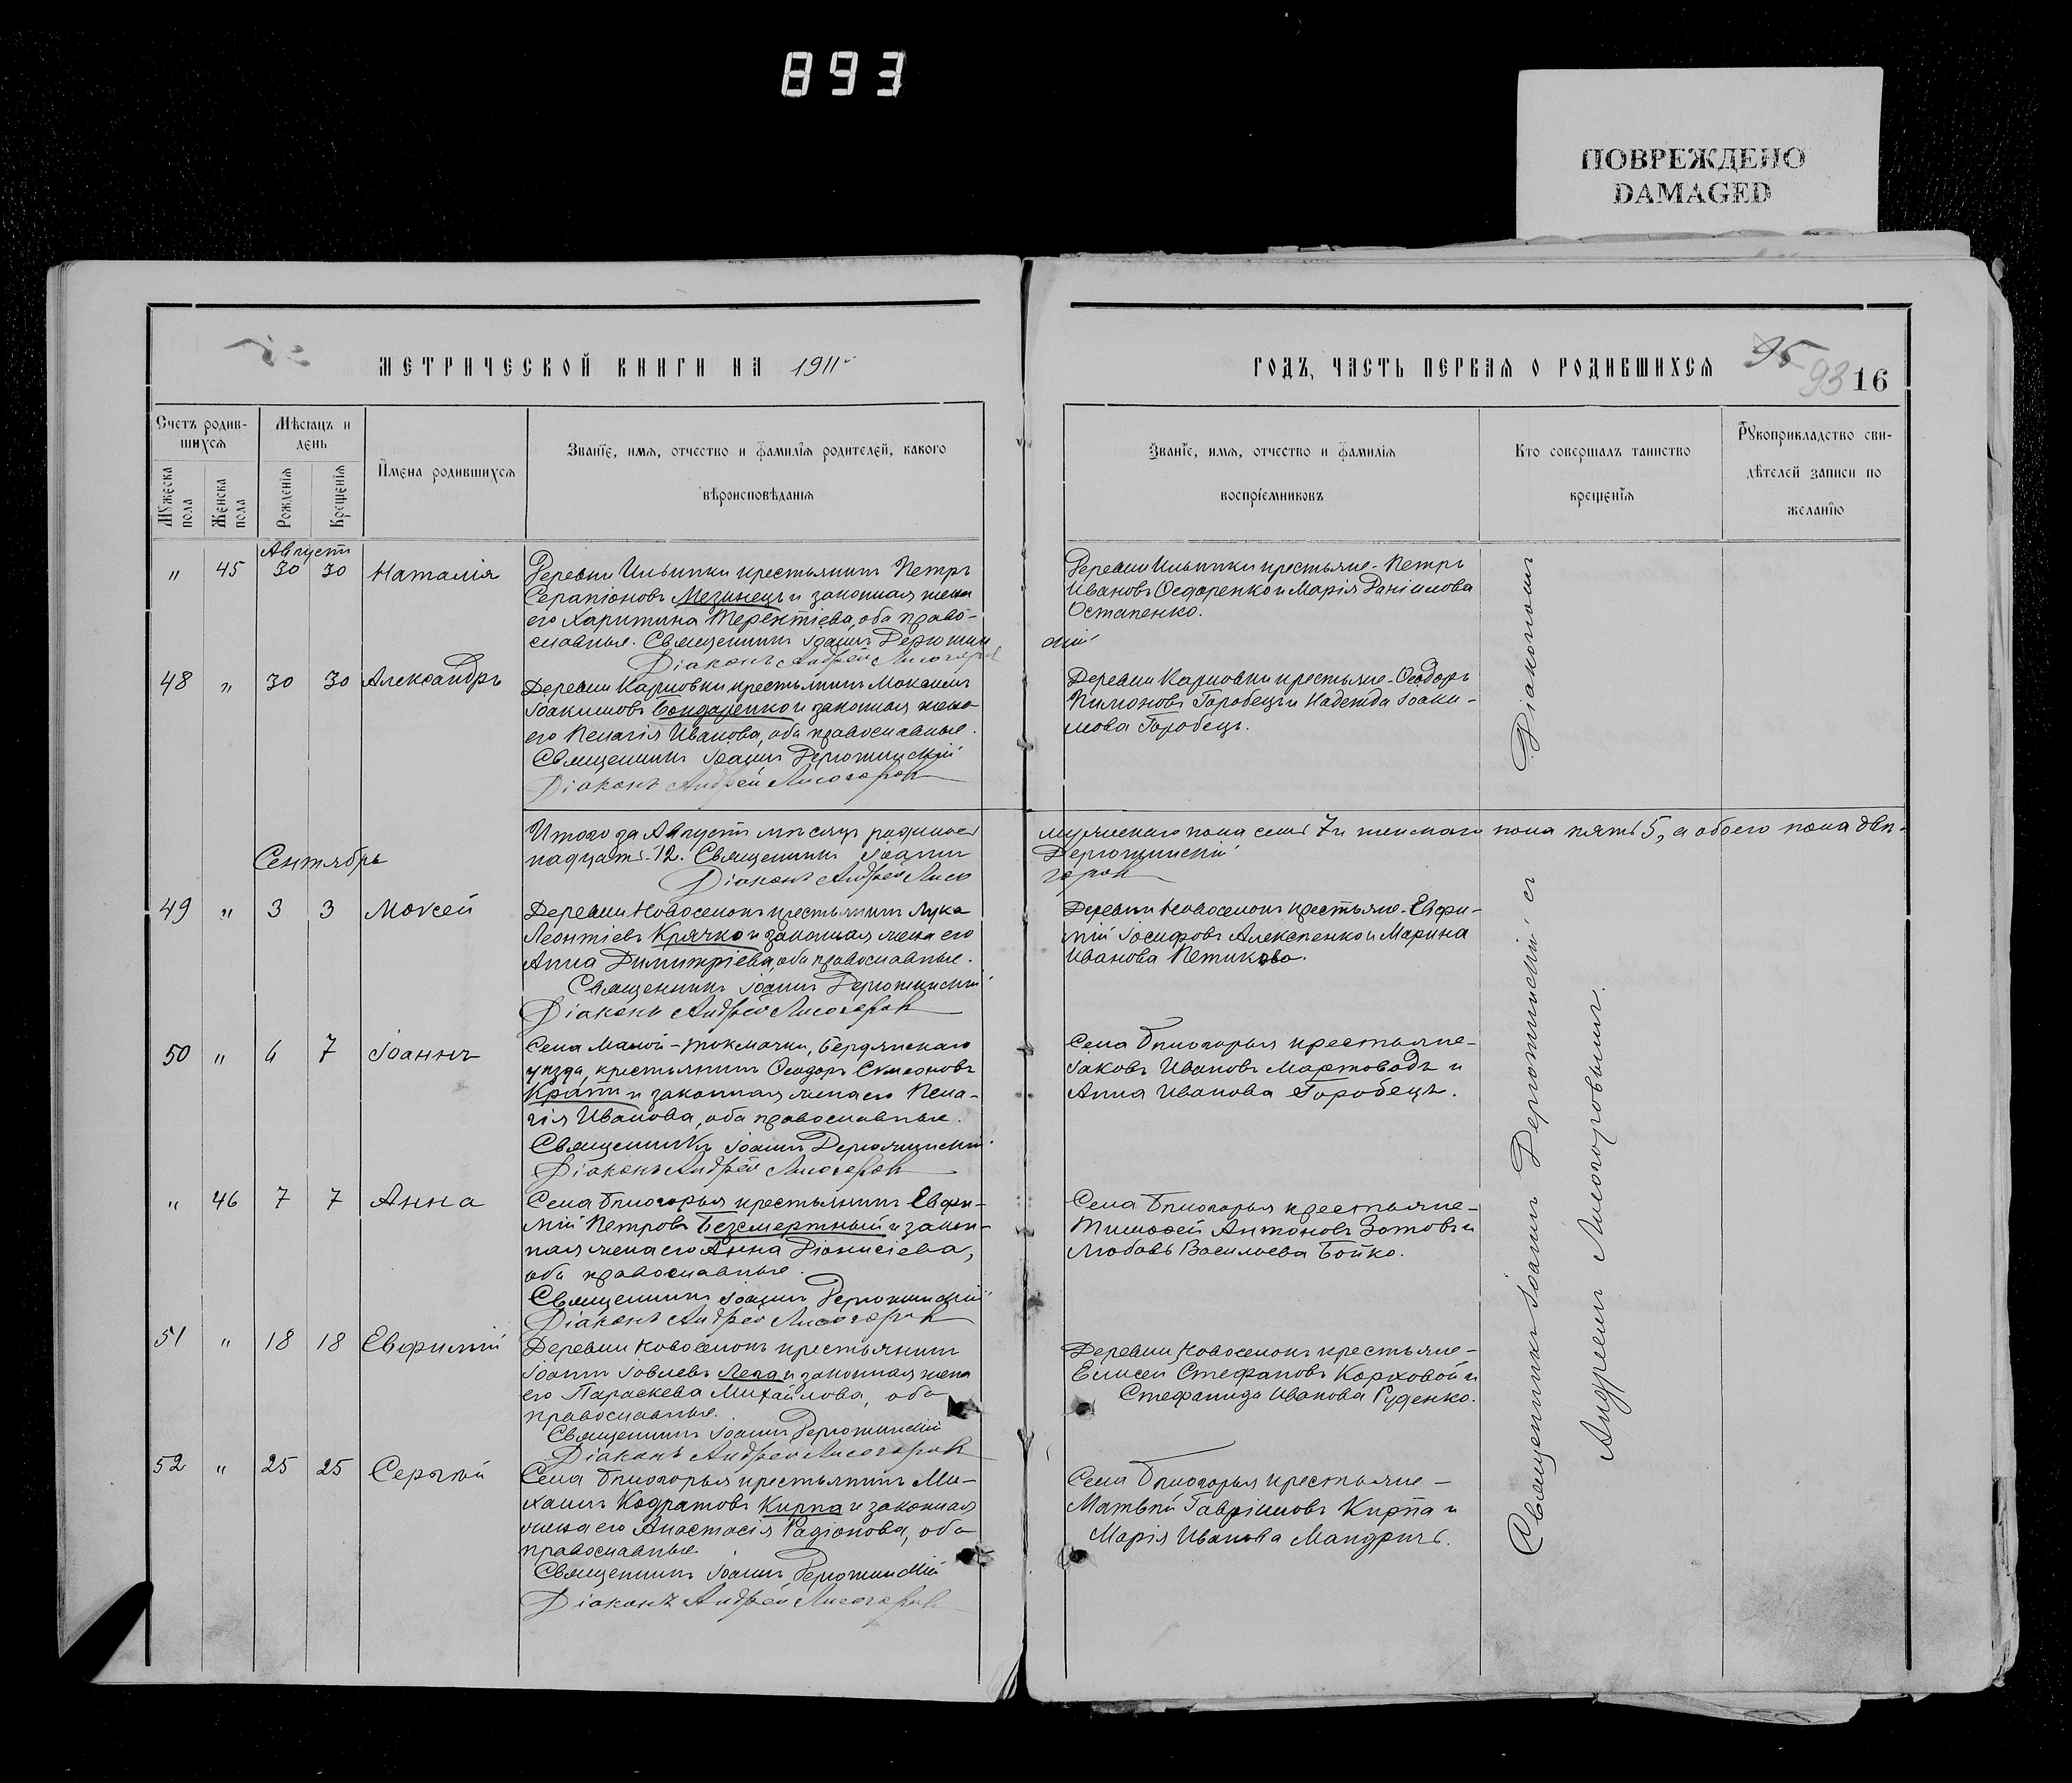 893
ПОВРЕЖДЕНО
DAMAGED
МЕТРИЧЕСКОЙ КНИГИ НА 1911й
ГОДЪ, ЧАСТЬ ПЕРВАЯ О РОДИВШИХСЯ
95
93 16
Счетъ родив-
шихся
Мѣсяцъ и
день
Мужеска
пола
Женска
пола
Рожденія
Крещенія
Имена родившихся
Званіе, имя, отчество и фамилія родителей, какого
вѣроисповѣданія
Званіе, имя, отчество и фамилія
воспріемниковъ
Кто совершалъ таинство
крещенія
Рукоприкладство сви-
дѣтелей записи по
желанію
Августъ
" 45 30 30 Наталія
Деревни Ильинки крестьянинъ Петръ
Серапіоновъ Мезинецъ и законная жена
его Харитина Терентіева, оба право-
славные. Священникъ Іоаннъ Дерюжин
скій
Діаконъ Андрей Лисогоров
Деревни Ильинки крестьяне - Петръ
Ивановъ Ѳедоренко и Марія Даніилова
Остапенко.
48 " 30 30 Александръ
Деревни Карповки крестьянинъ Максимъ
Іоакимовъ Бондаренко и законная жена
его Пелагія Иванова, оба православные.
Священникъ Іоаннъ Дерюжинскій
Діаконъ Андрей Лисогоров
Деревни Карповки крестьяне - Ѳеодоръ
Пимоновъ Горобецъ и Надежда Іоаки-
мова Горобецъ.
Итого за Августъ мѣсяцъ родилось мужескаго пола семь 7 и женскаго пола пять 5, а обоего пола двѣ-
надцать - 12. Священникъ Іоаннъ Дерюжинскій
Діаконъ Андрей Лисогоров
Сентябрь
49 " 3 3 Моѵсей
Деревни Новоселокъ крестьянинъ Лука
Леонтіевъ Крячко и законная жена его
Анна Димитріева, оба православные.
Священникъ Іоаннъ Дерюжинскій
Діаконъ Андрей Лисогоров
Деревни Новоселокъ крестьяне - Евфи-
мій Іосифовъ Алексенко и Марина
Иванова Петикова.
50 " 6 7 Іоаннъ
Села Малой-Токмачки, Бердянскаго
уѣзда, крестьянинъ Ѳеодоръ Симеоновъ
Кратъ и законная жена его Пела-
гія Иванова, оба православные.
Священникъ Іоаннъ Дерюжинскій
Діаконъ Андрей Лисогоров
Села Бѣлогорья крестьяне -
Іаковъ Ивановъ Мартовадъ и
Анна Иванова Горобецъ.
" 46 7 7 Анна
Села Бѣлогорья крестьянинъ Евфи-
мій Петровъ Безсмертный и закон-
ная жена его Анна Діонисіева,
оба православные.
Священникъ Іоаннъ Дерюжинскій
Діаконъ Андрей Лисогоров
Села Бѣлогорья крестьяне -
Тимоѳей Антоновъ Зотовъ и
Любовь Васильева Бойко.
51 " 18 18 Евфимій
Деревни Новоселокъ крестьянинъ
Іоаннъ Іовлевъ Лега и законная жена
его Параскева Михайлова, оба
православные.
Священникъ Іоаннъ Дерюжинскій
Діаконъ Андрей Лисогоров
Деревни Новоселокъ крестьяне -
Елисей Стефановъ Корховой и
Стефанида Иванова Руденко.
52 " 25 25 Сергѣй
Села Бѣлогорья крестьянинъ Ми-
хаилъ Кодратовъ Кирпа и законная
жена его Анастасія Радіонова, оба
православные
Священникъ Іоаннъ Дерюжинскій
Діаконъ Андрей Лисогоров
Села Бѣлогорья крестьяне -
Матвѣй Гавріиловъ Кирпа и
Марія Иванова Мандричъ.
Священникъ Іоаннъ Дерюжинскій съ Діакономъ
Андреемъ Лисогоровымъ.